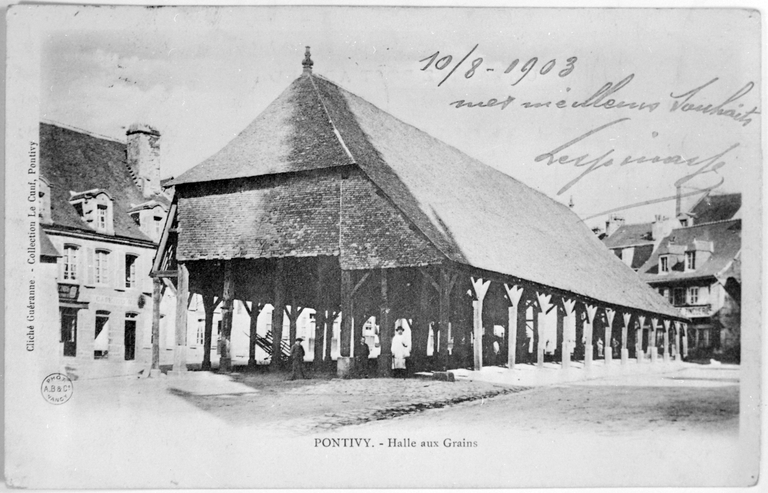 10/8-1903
mes meilleurs souhaits
Cliché Guéranne. - Collection Le Cunf, Pontivy
PHOT.
A.B & Cie
NANCY
PONTIVY. - Halle aux Grains